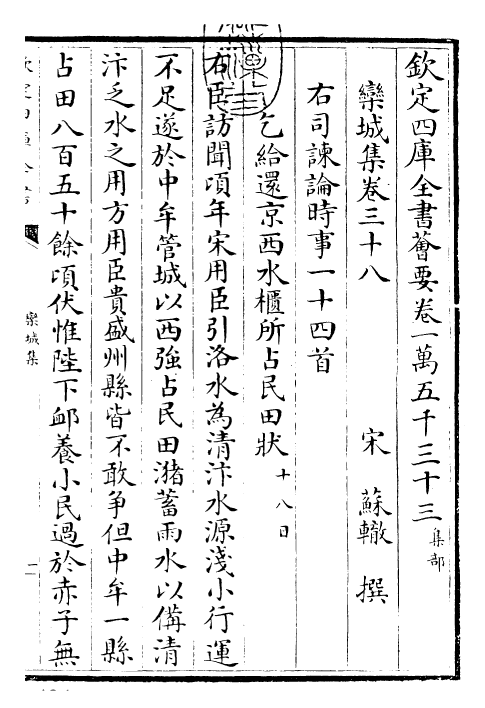 欽定四庫全書薈要卷一萬五千三十三 集部
欒城集卷三十八 宋 蘇轍 撰
右司諫論時事一十四首
乞給還京西水櫃所占民田狀 十八日
右臣訪聞頃年宋用臣引洛水為清汴水源淺小行運
不足遂於中牟管城以西強占民田瀦蓄雨水以備清
汴乏水之用方用臣貴盛州縣皆不敢爭但中牟一縣
占田八百五十餘頃伏惟陛下䘏養小民過於赤子無
欒城集
一